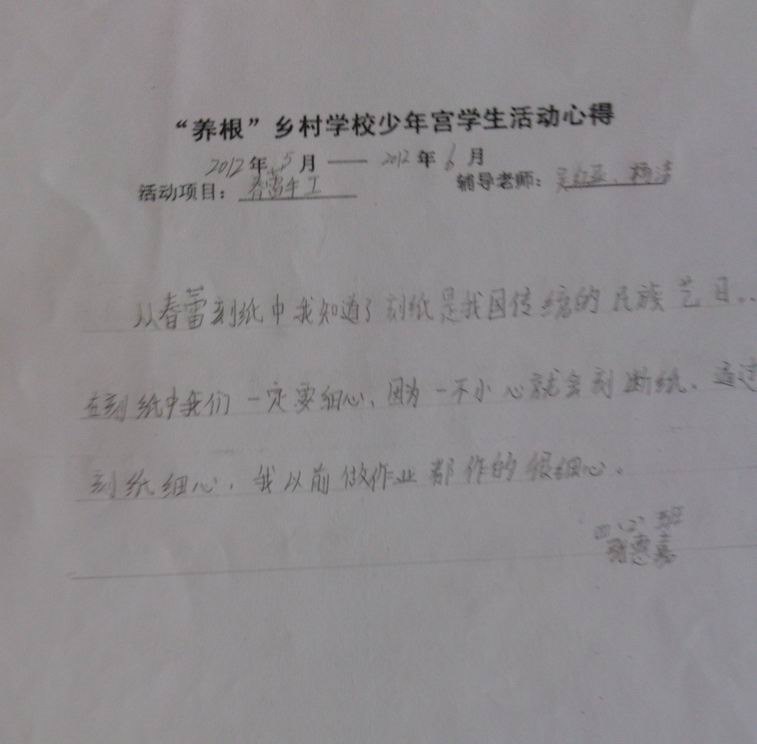 “养根”乡村学校少年宫学生活动心得
2012年5月——2012年6月
活动项目：春蕾手工 辅导老师：吴红亚、杨洁
从春蕾刻纸中我知道了刻纸是我国传统的民族艺日..
在刻纸中我们一定要细心、因为一不小心就会刻断纸、通过
刻纸细心，我以前做作业都作的很细心。
四（2）班
惠嘉